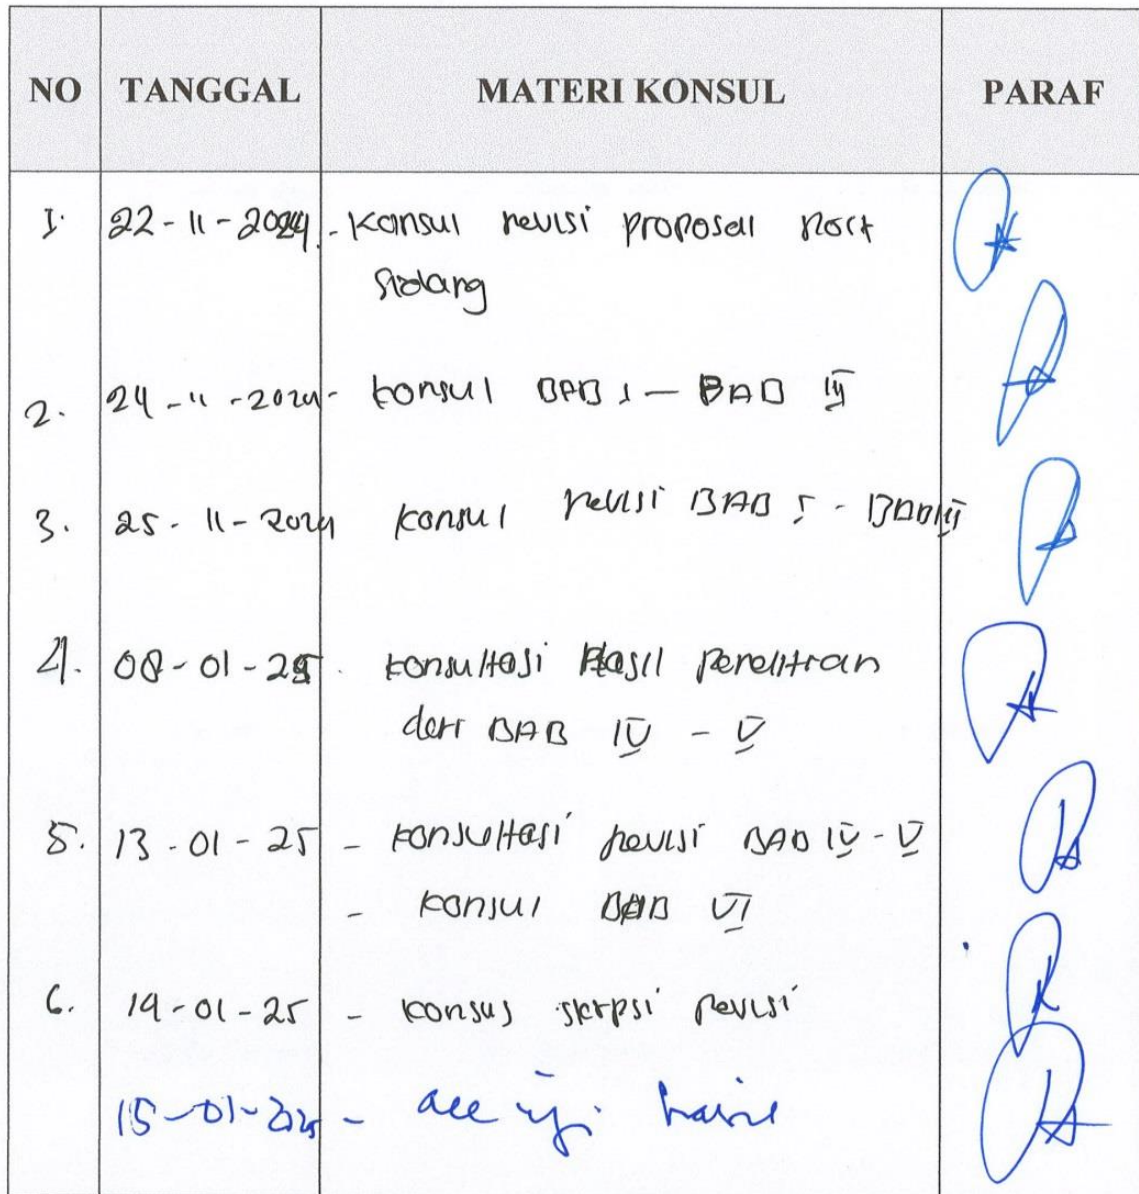 NO TANGGAL MATERI KONSUL PARAF
1. 22-11-2024 - Konsul revisi proposal post
sidang
2. 24-11-2024 - konsul BAB I - BAB III
3. 25-11-2024 konsul revisi BAB I - BAB III
4. 08-01-25 - konsultasi Hasil penelitian
dari BAB IV - V
5. 13-01-25 - konsultasi revisi BAB IV - V
- konsul BAB VI
6. 14-01-25 - konsus skrpsi revisi
15-01-2025 - acc uji hasil